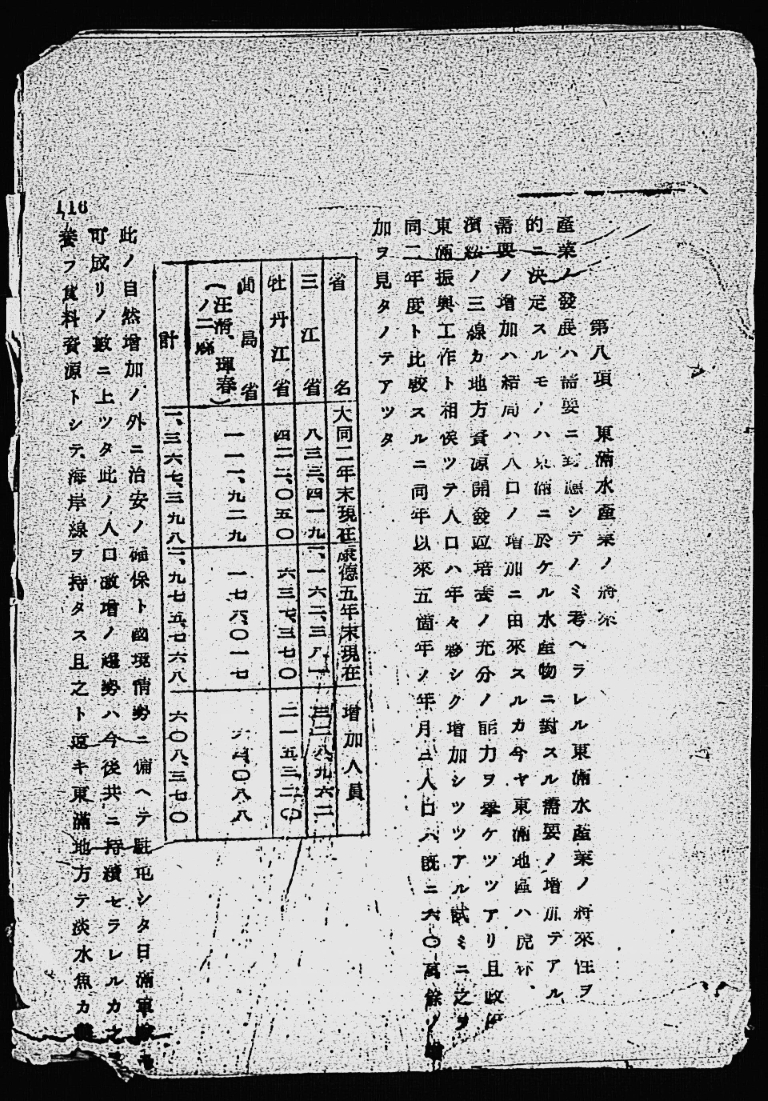 第八項　東滿水產業ノ將來
產業ノ發展ハ需要ニ對應シテノミ考ヘラレル東滿水產業ノ將來性ヲ
的ニ決定スルモノハ東滿ニ於ケル水產物ニ對スル需要ノ增加テアル
需要ノ增加ハ結局ハ人口ノ增加ニ由來スルカ今ヤ東滿地區ハ虎林、
濱綏ノ三線カ地方資源開發竝培養ノ充分ノ能力ヲ擧ケツツアリ且政府
東滿振興工作ト相俟ツテ人口ハ年々夥シク增加シツツアル試ミニ之ヲ
同二年度ト比較スルニ同年以來五箇年ノ年月ニ人口ハ既ニ六〇萬餘ノ增
加ヲ見タノテアツタ
省名　大同二年末現在　康德五年末現在　增加人員
三江省　八三三、四一九　一、一六二、三八一　三二八、九六二
牡丹江省　四二二、〇五〇　六三七、三七〇　二一五、三二〇
間島省（汪淸、琿春ノ二縣）　一一一、九二九　一七六、〇一七　六四、〇八八
計　一、三六七、三九八　一、九七五、七六八　六〇八、三七〇
此ノ自然增加ノ外ニ治安ノ確保ト國境情勢ニ備ヘテ駐屯シタ日滿軍
可成リノ數ニ上ツタ此ノ人口激增ノ趨勢ハ今後共ニ持續セラレルカ
養フ食料資源トシテ海岸線ヲ持タス且之ト遠キ東滿地方テ淡水魚カ
116